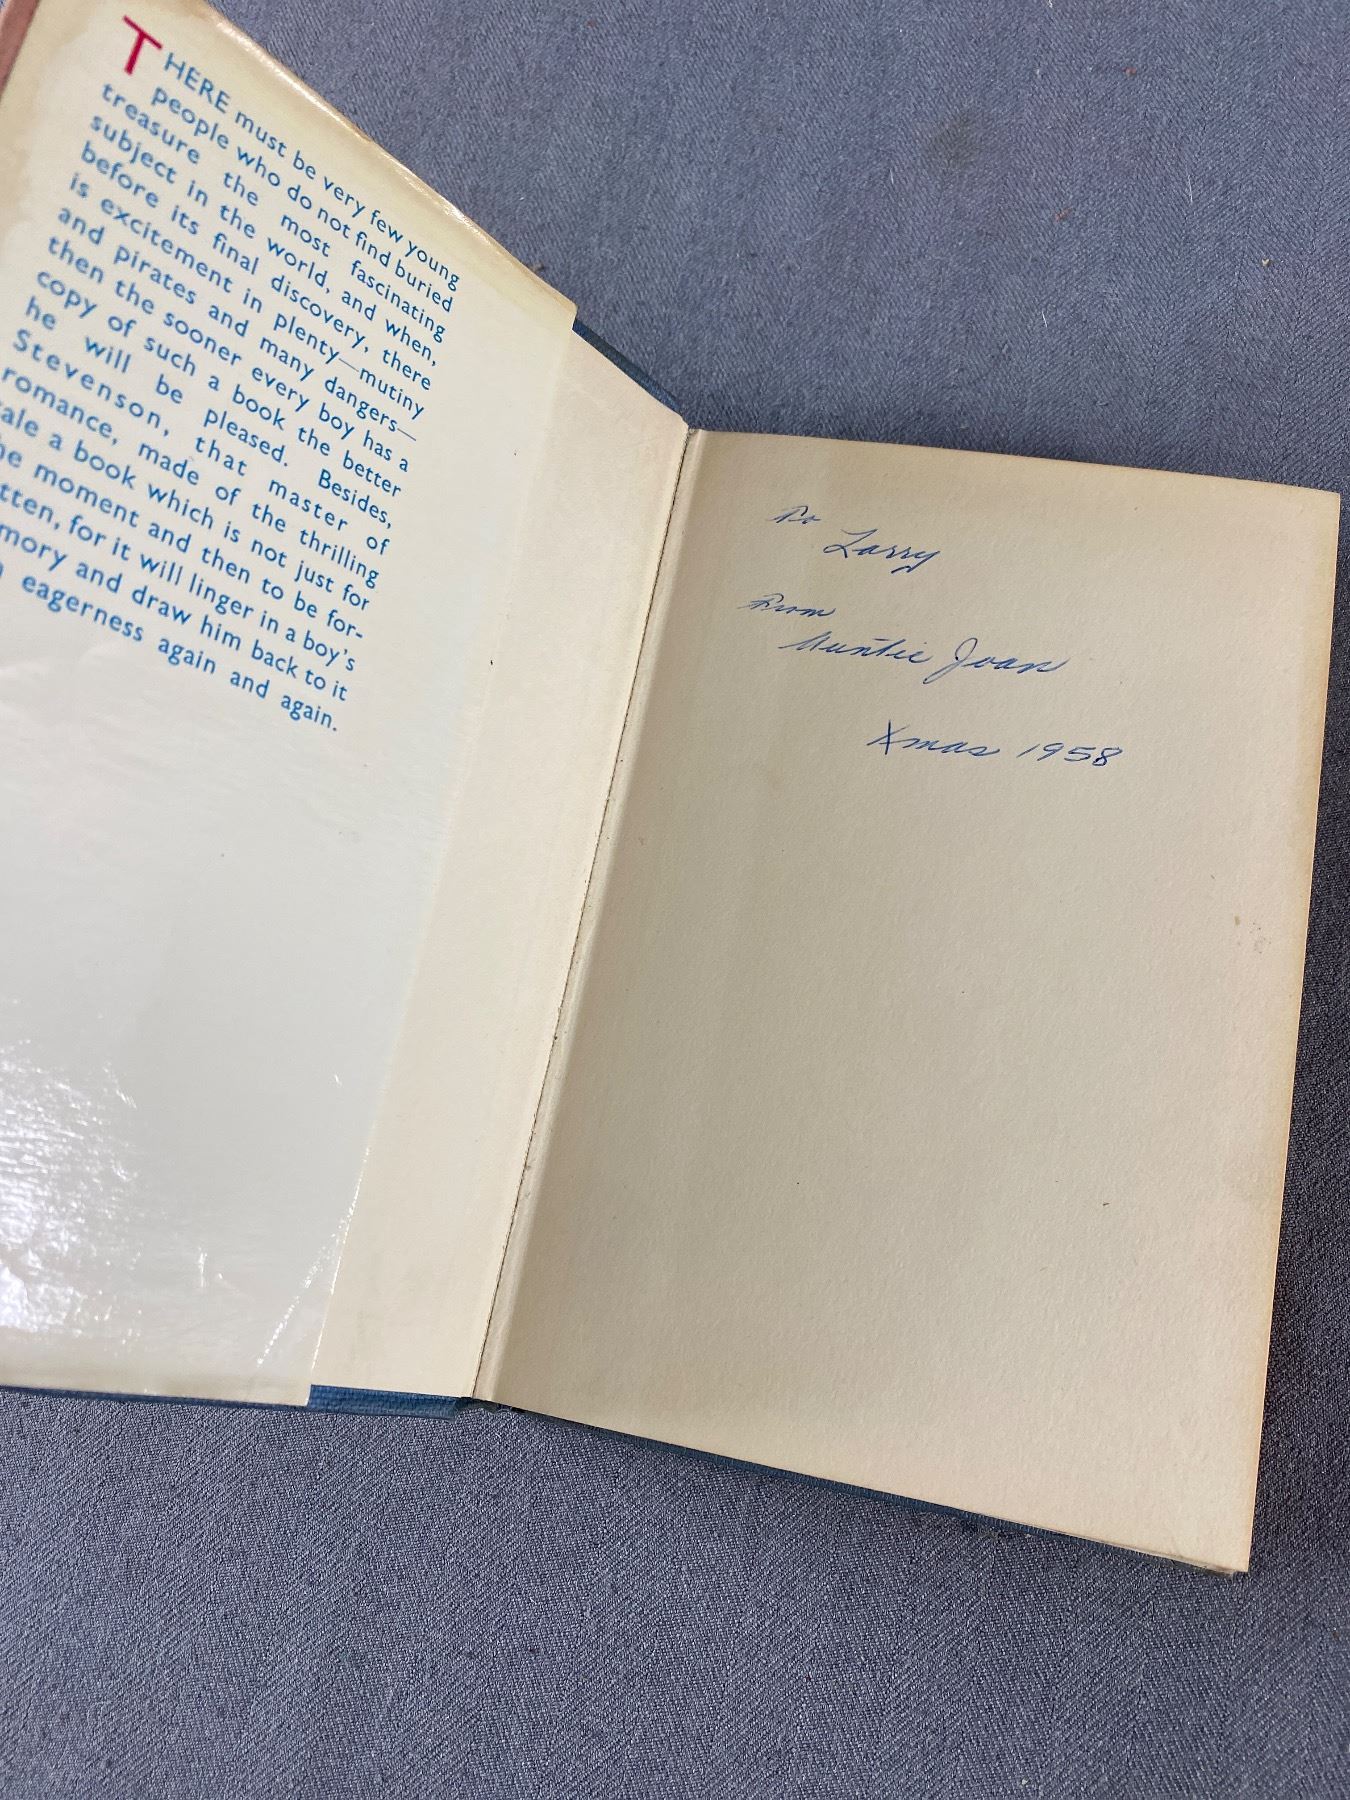 THERE must be very few young
people who do not find buried
treasure the most fascinating
subject in the world, and when,
before its final discovery, there
is excitement in plenty—mutiny
and pirates and many dangers—
then the sooner every boy has a
copy of such a book the better
he will be pleased. Besides,
Stevenson, that master of
romance, made of the thrilling
tale a book which is not just for
the moment and then to be for-
tten, for it will linger in a boy's
mory and draw him back to it
eagerness again and again.
To
Larry
From
Auntie Joan
Xmas 1958